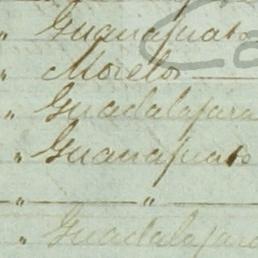 " Guanajuato
" Morelos
" Guadalajara
" Guanajuato
" "
" Guadalajara